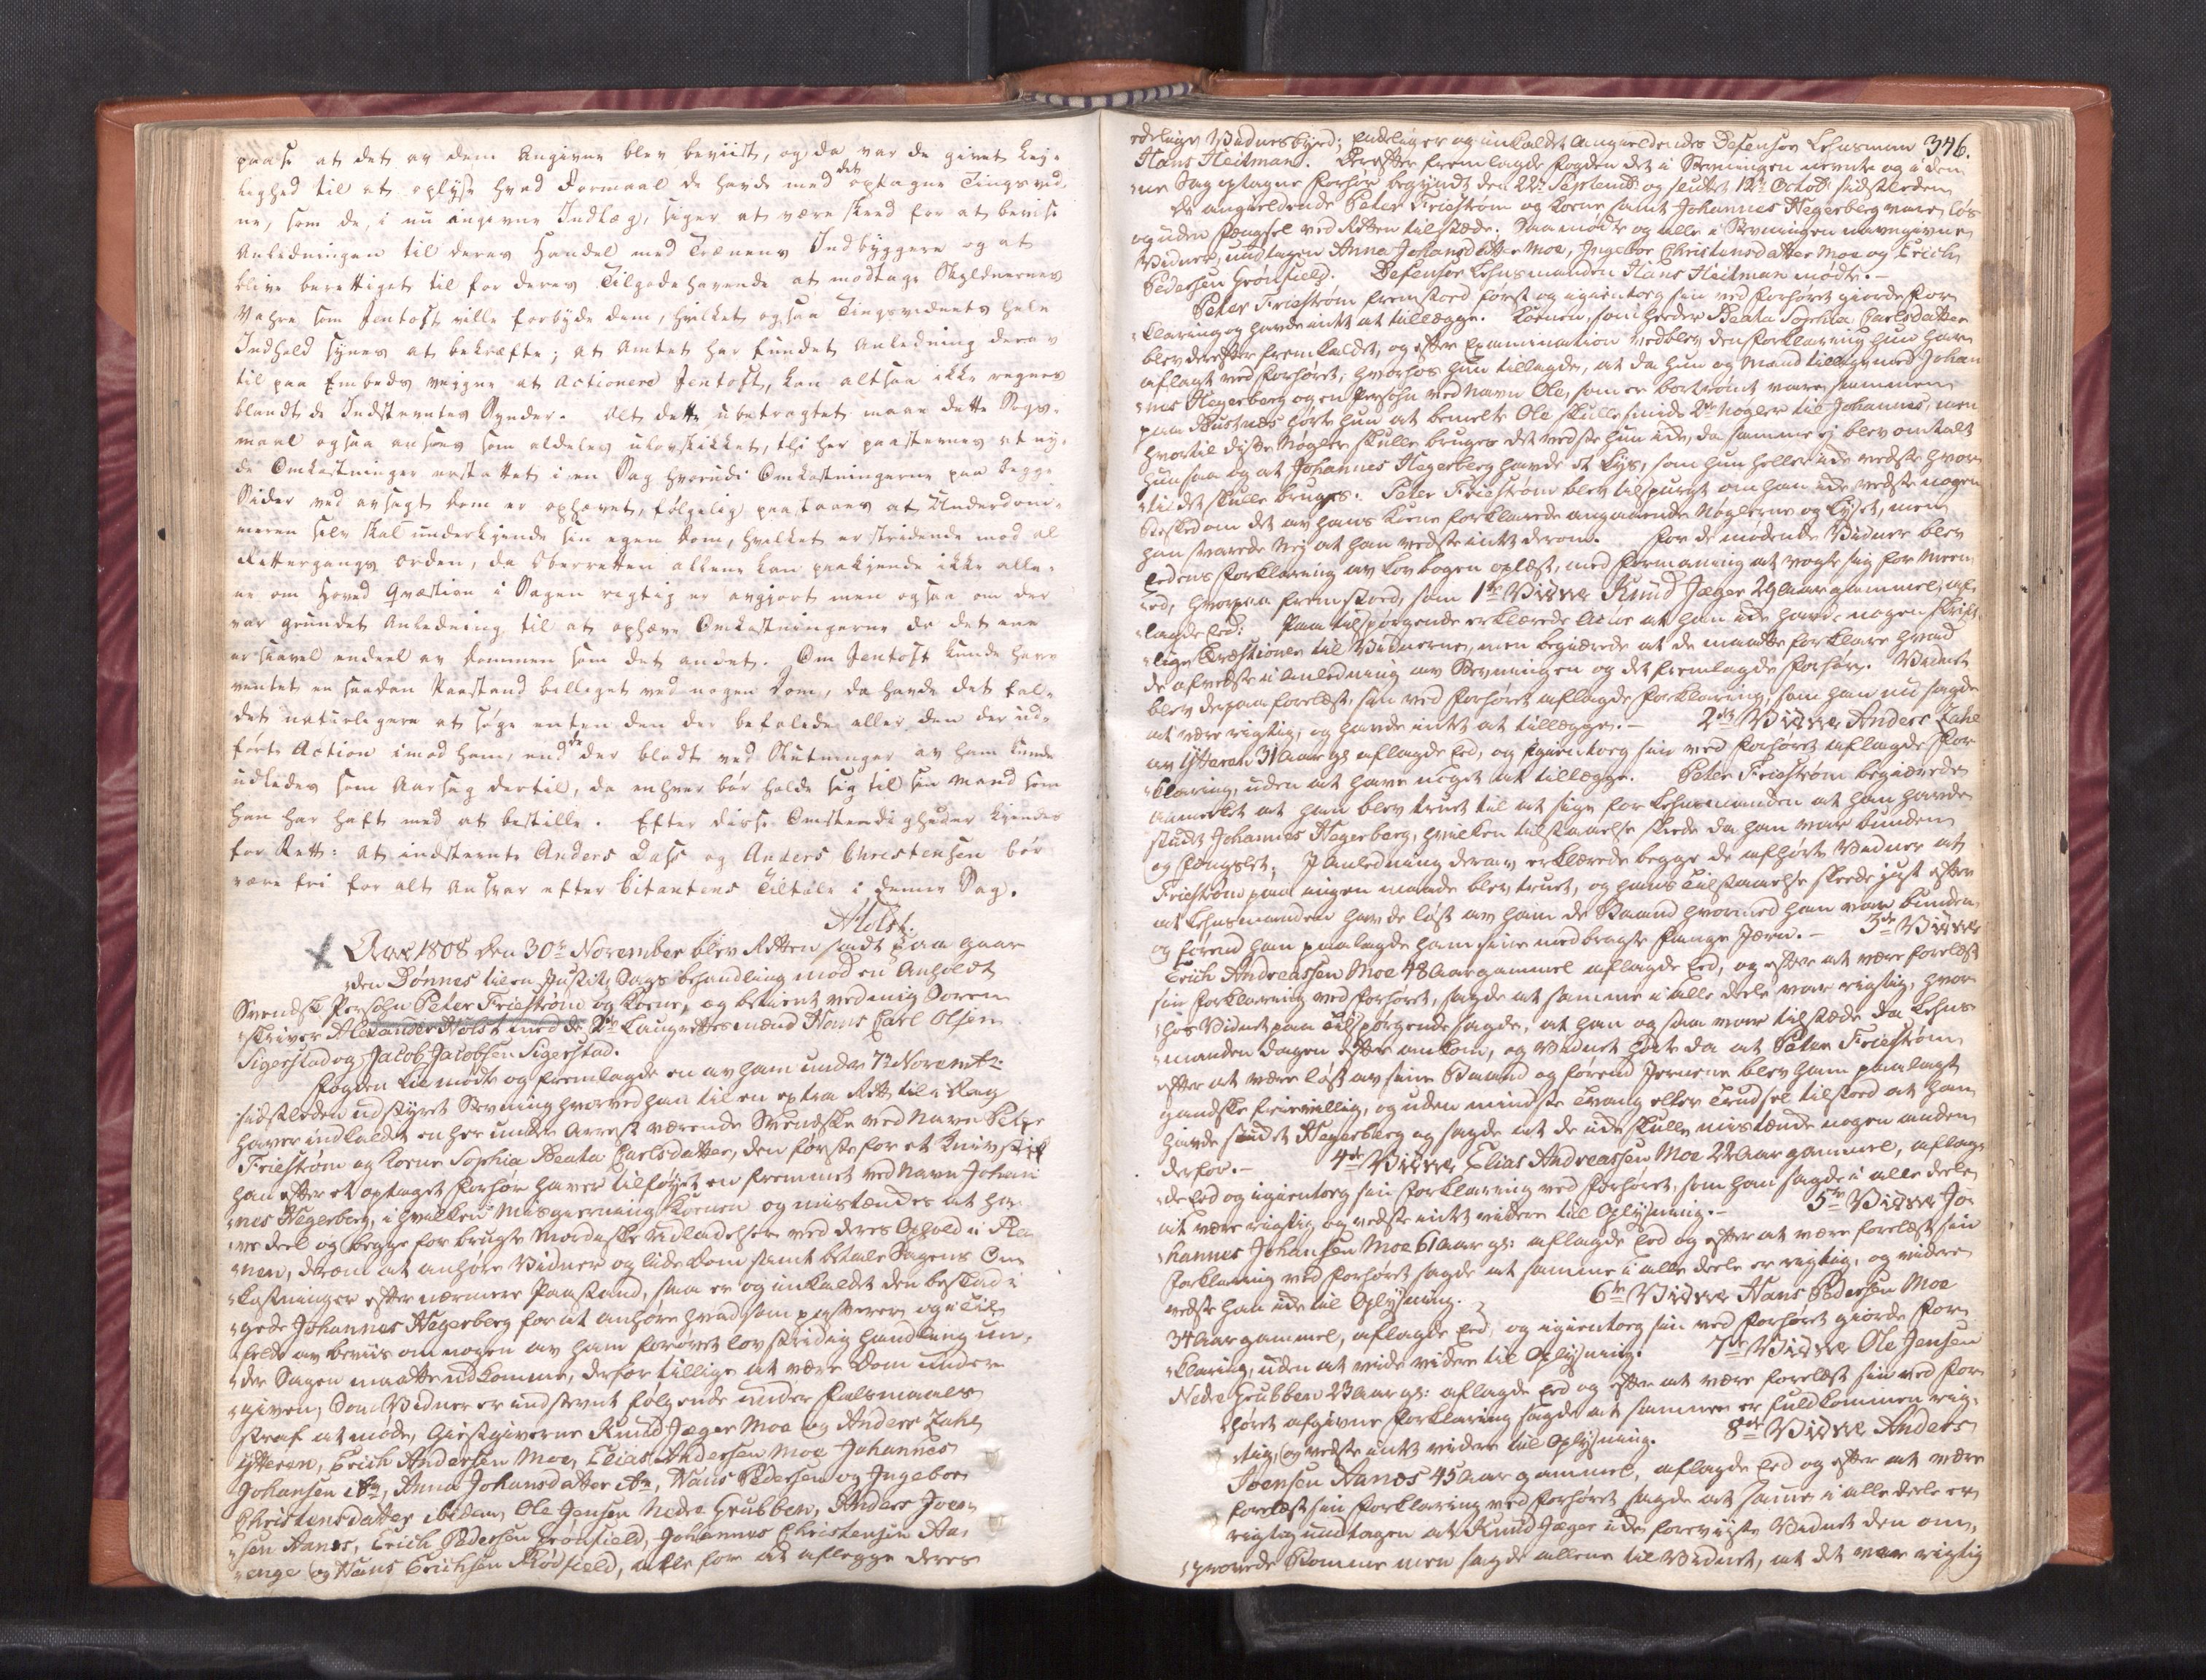 paase at det av dem Angivne blev beviist, og da var de givet Lej-
lighed til at oplyse hvad Formaal de havde med det optagne Tingsvid-
ne, som de, i nu angivne Indlæg, siger at være skeed for at bevise
Anledningen til deres Handel med Trænens Indbyggere og at
blive berettiget til for deres Tilgodehavende at modtage Skyldnernes
Vahre som Jentoft ville forbyde dem, hvilket ogsaa Tingsvidnets hele
Indhold synes at bekræfte; at Amtet har fundet Anledning derav
til paa Embeds vejgne at Actionere Jentoft, kan altsaa ikke regnes
blandt de Indstevntes Synder. Alt dette ubetragtet maae dette Søgs-
maal ogsaa ansees som aldeles ulovskikket, thi her paastevnes at ny-
de Omkostninger erstattet i en Sag hvorudi Omkostningerne paa begge
Sider ved avsagt Dom er ophævet, følgelig paastaaes at Underdom-
meren selv skal underkjende sin egen Dom, hvilket er stridende mod al
Rettergangs Orden, da Oberretten allene kan paakjende ikke alle-
ne om Hoved Qvæstion i Sagen rigtig er avgjort men ogsaa om der
var grundet Anledning til at ophæve Omkostningerne da det ene
er saavel endeel av Dommen som det andet. Om Jentoft kunde have
ventet en saadan Paastand billiget ved nogen Dom, da havde det fal-
det naturligere at søge enten den der befalede eller den der ud-
førte Action imod ham, end de der blodt ved Slutninger av ham kunde
udledes som Aarsag dertil, da enhver bør holde sig til sin Mand som
han har haft med at bestille. Efter disse Omstændigheder kjendes
for Rett: At indstevnte Anders Dass og Anders Christensen bør
være fri for alt Ansvar efter Citantens Tiltale i denne Sag.
AHolst.
Aar 1808 den 30te November blev Retten sadt paa Gaar
den Dønnes til en Justits Sags behandling mod en Anholdt
Svendsk Persohn Peter Friestrøm og Kone, og betient ved mig Soren
skriver Alexander Holst med de 2de Laugrettesmænd Hans Carl Olsen
Sigerstad og Jacob Jacobsen Sigerstad.
Fogden Lie mødte og fremlagde en av ham under 7de Novemb:
sidstleden udstyret Stevning hvorved han til en extra Rett til i Dag
haver indkaldt en her under Arrest værende Svendske ved Navn Peter
Friestrøm og Kone Sophia Beata Carlsdatter, den første for et Knivstik
han efter et optaget Forhør haver tilføyet en fremmet ved Navn Johan
nes Hegerberg, i hvilken Misgierning Konen og mistænkes at ha
ve deel og begge for brugte Mordiske Udladelser ved deres Ophold i Ra
nen, derom at anhøre Vidner og lide Dom samt betale Sagens Om
kostninger efter nærmere Paastand, saa er og indkaldt den beskadi
gede Johannes Hegerberg for at anhøre hvad som passerer og i Til
felde av beviis om nogen av ham forøvet lovstridig handling un-
der Sagen maatte udkomme, derfor tillige at være Dom under
given; Som Vidner er indstevnt følgende under Falsmaals
straf at møde, Giestgiverne Knud Jæger Moe og Anders Zahl
Ytteren, Erich Andersen Moe, Elias Andersen Moe Johannes
Johansen ibm, Anna Johansdatter ibm, Hans Pedersen og Ingebor
Christensdatter ibidem, Ole Jensen Nedre Grubben, Anders Joen
sen Aanes, Erich Pedersen Grønfield, Johannes Christensen Aa-
enge og Hans Erichsen Rødfield, alle for at aflegge deres
346.
edelige Vidnesbyrd; endeligen og indkaldet Angieldendes Defensor Lehnsman
Hans Heitman. Derefter fremlagde Fogden det i Stevningen nevnte og i den
ne Sag optagne Forhør begyndt den 22de Septemb: og sluttet 12te Octob: sidstleden
De angieldende Peter Friestrøm og Kone samt Johannes Hegerberg vare løs
og uden Fengsel ved Retten tilstæde. Saa mødte og alle i Stevningen navngivne
Vidner, undtagen Anna Johansdatter Moe, Ingebor Christensdatter Moe og Erich
Pedersen Grønfield. Defensor Lehnsmanden Hans Heitman mødte.-
Peter Friestrøm fremstoed først og igientoeg sin ved Forhøret giorde For
klaring og havde intet at tillægge. Konen, som heeder Beata Sophia Carlsdatter
blev derefter fremkaldet, og efter Examination vedblev den Forklaring hun har
aflagt ved Forhøret; hvorhos hun tillagde, at da hun og Mand tilligemed Johan
nes Hegerberg og en Persohn ved Navn Ole, som er bortrømt vare sammen
paa Bustnæs hørte hun at bemelte Ole skulle smide 2de Nøgler til Johannes, men
hvortil disse Nøgler skulle bruges det vedste hun icke, da samme ej blev omtalt
hun saa og at Johannes Hegerberg havde et Lys, som hun heller icke vedste hvor
til det skulle bruges. Peter Friestrøm blev tilspurgt om han icke vedste nogen
Beskeed om det av hans Kone forklarede angaaende Nøglerne og Lyset, men
han svarede Nej at han vedste intet derom. For de mødende Vidner blev
Eedens Forklaring av Lovbogen oplæst, med Formaning at vogte sig for Meen
eed, hvorpaa fremstoed, som 1te Vidne Knud Jæger 29 Aar gammel, af-
lagde Eed. Paa tilspørgende erklærede Actor at han icke havde nogen skrift
lige Qvæstioner til Vidnerne, men begiærede at de maatte forklare hvad
de afvedste i Anledning av Stevningen og det fremlagde Forhør. Vidnet
blev derpaa forelæst, sin ved Forhøret aflagde Forklaring, som han nu sagde
at være rigtig, og havde intet at tillægge.- 2det Vidne Anders Zahl
av Ytteren 31 Aar gl: aflagde Eed, og igientoeg sin ved Forhøret aflagde For
klaring, uden at have noget at tillægge. Peter Friestrøm begiærede
anmerket at han blev truet til at sige for Lehnsmanden at han havde
studt Johannes Hegerberg, hvilken tilstaaelse skede da han var bunden
og fengslet; I Anledning derav erklærede begge de afhørte Vidner at
Friestrøm paa ingen maade blev truet, og hans Tilstaaelse skeede just efter
at Lehnsmanden havde løst av ham de Baand hvormed han var bunden
og førend han paalagde ham sine medbragte Fange Jærn.- 3de Vidne
Erich Andreassen Moe 48 Aar gammel aflagde Eed, og efter at være forelæst
sin Forklaring ved Forhøret, sagde at samme i alle deele var rigtig, hvor
hos Vidnet paa Tilspørgende sagde, at han og saa var tilstæde da Lehns
manden dagen efter ankom, og Vidnet hørte da at Peter Friestrøm
efter at være løst av sine Baand og førend Jernene blev ham paalagt
gandske frievillig, og uden mindste Tvang eller Trudsel tilstoed at han
havde studt Hegerberg og sagde at de icke skulle mistænke nogen anden
derfor.- 4de Vidne Elias Andreassen Moe 22 Aar gammel, aflag-
de Eed og igientoeg sin Forklaring ved Forhøret, som han sagde i alle deele
at være rigtig og vedste intet videre til Oplysning.- 5te Vidne Jo-
hannes Johansen Moe 61 Aar gl: aflagde Eed og efter at være forelæst sin
Forklaring ved Forhøret sagde at samme i alle deele er rigtig, og videre
vedste han icke til Oplysning. 6te Vidne Hans Pedersen Moe
34 Aar gammel, aflagde Eed, og igientoeg sin ved Forhøret giorde For
klaring, uden at vide videre til Oplysning. 7de Vidne Ole Jensen
Nedre Grubben 23 Aar gl: aflagde Eed og efter at være forelæst sin ved For
høret afgivne Forklaring sagde at samme er fuldkommen rig-
tig, og vedste intet videre til Oplysning. 8de Vidne Anders
Joensen Aanæs 45 Aar gammel, aflagde Eed og efter at være
forelæst sin Forklaring ved Forhøret sagde at samme i alle deele er
rigtig undtagen at Knud Jæger icke foreviiste Vidnet den om-
hvorede Komme men sagde allene til Vidnet, at det var rigtig